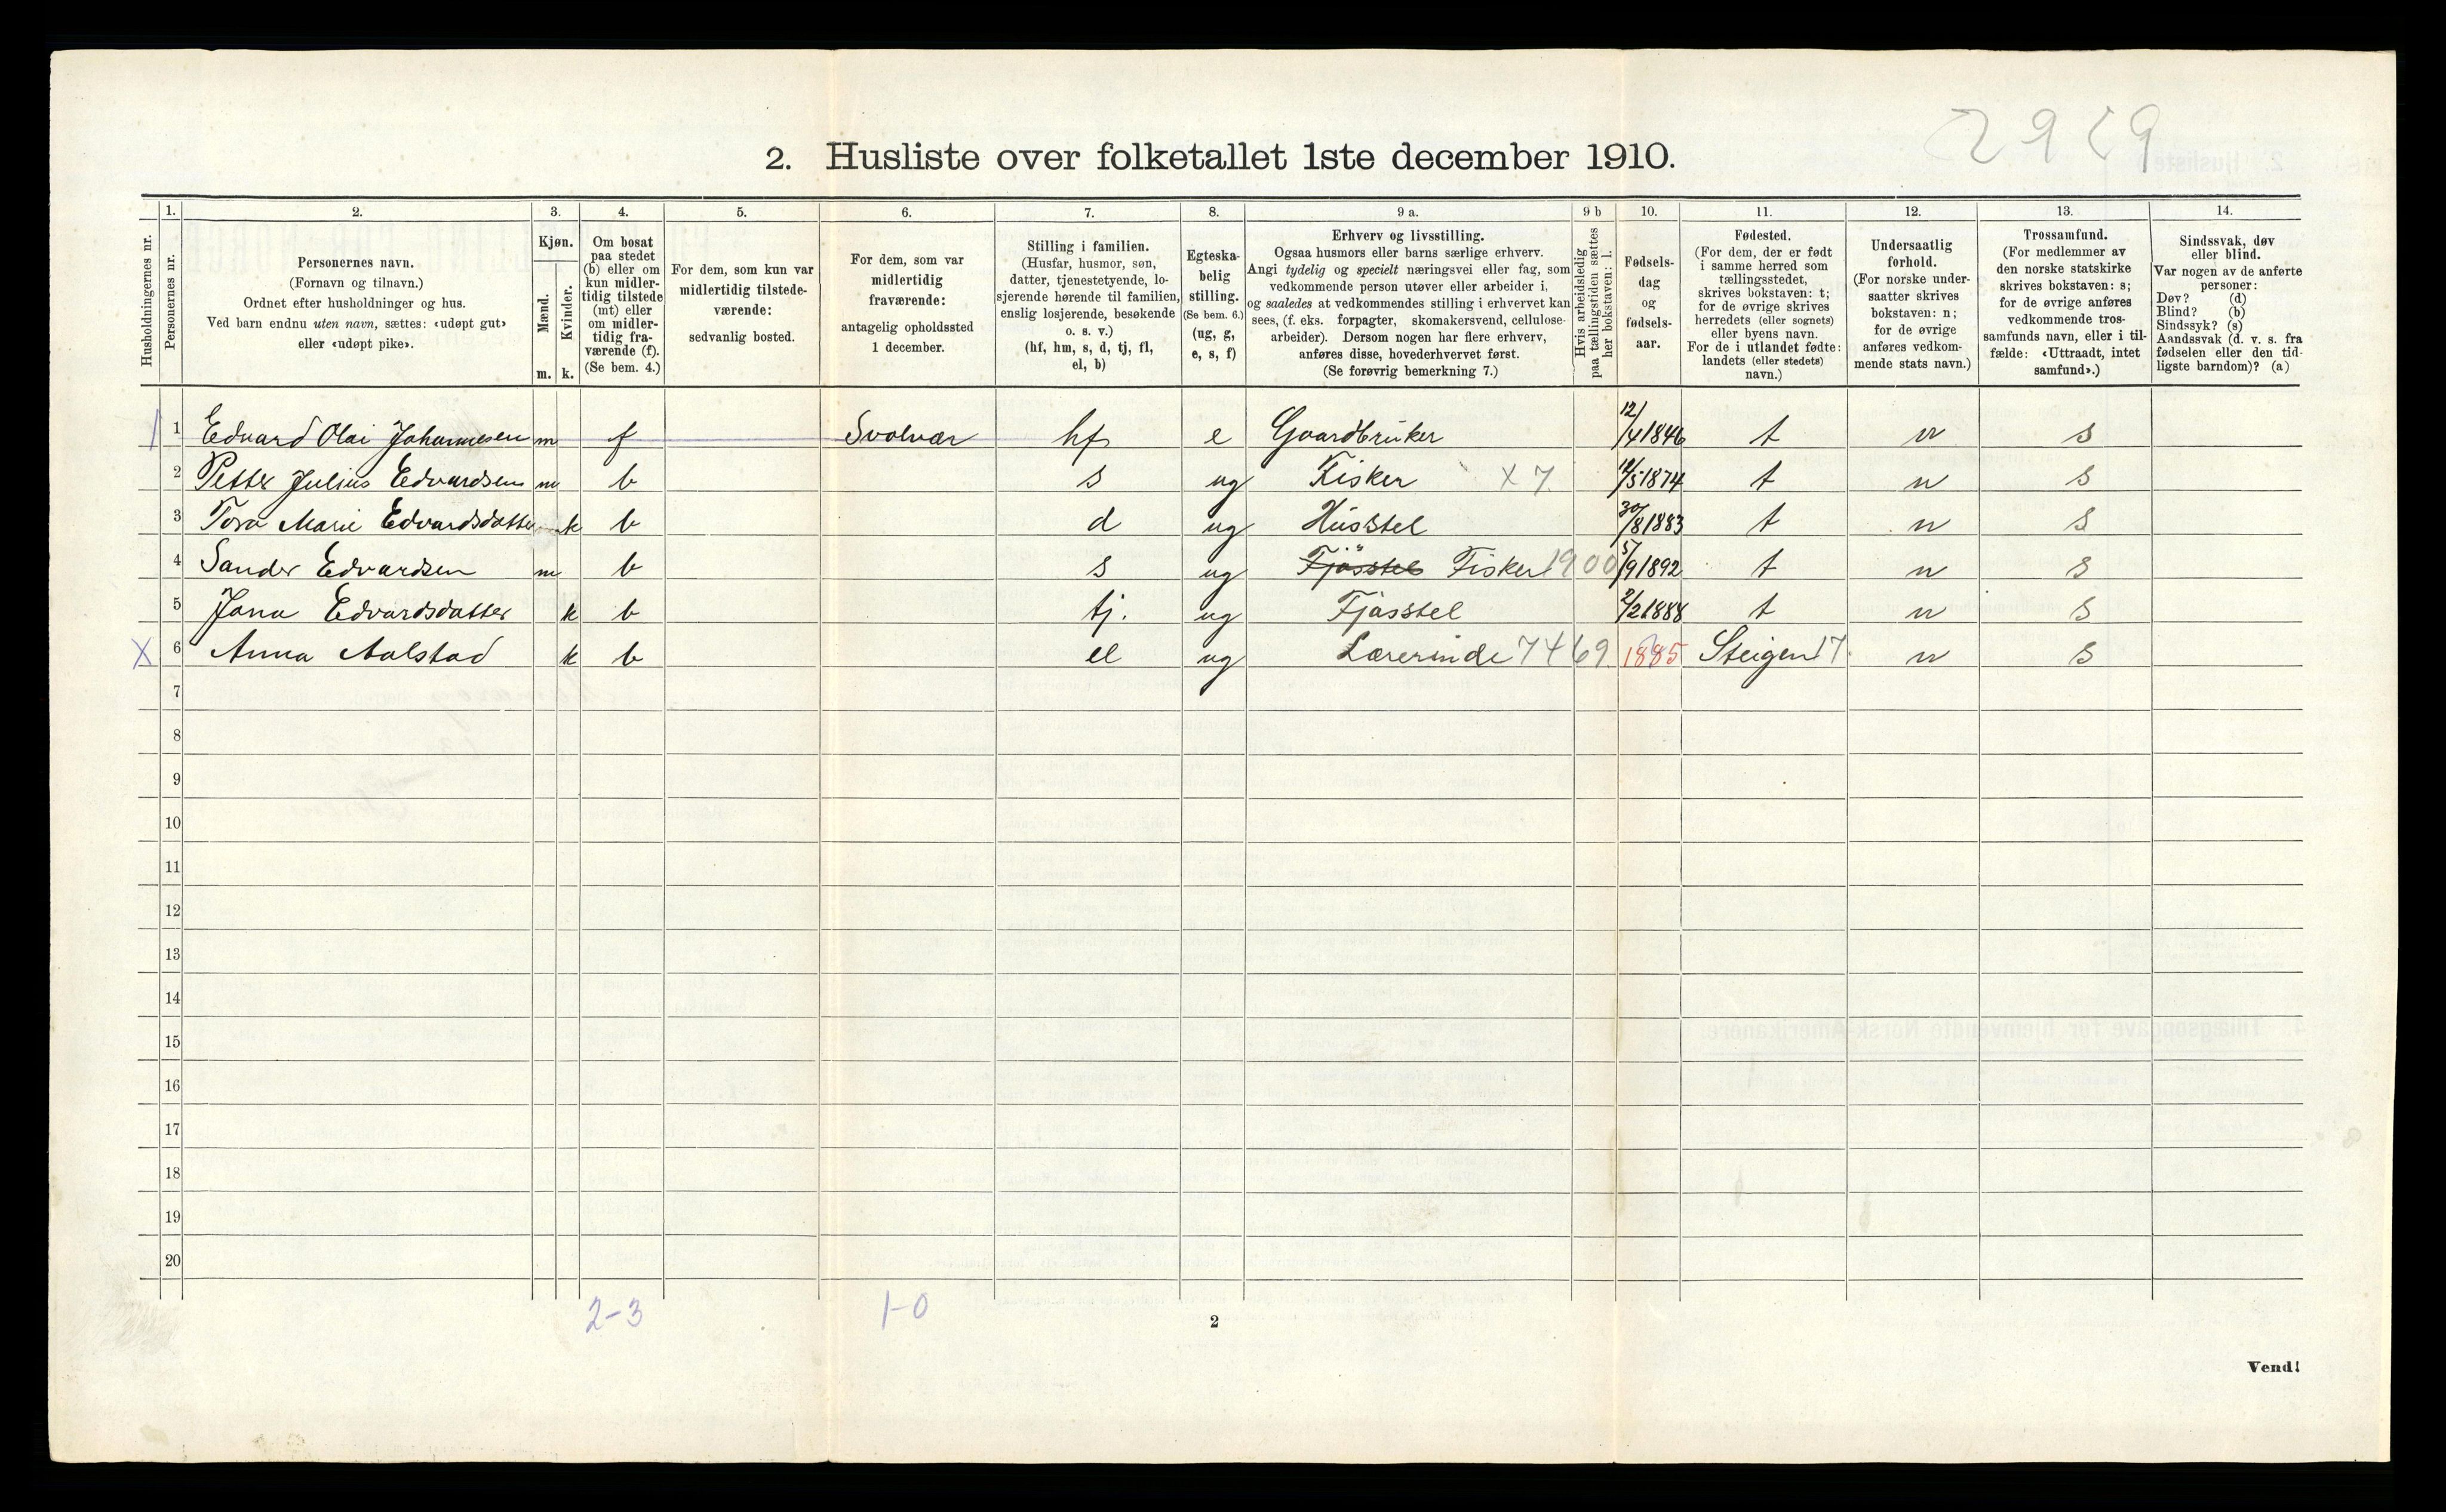 2929
2. Husliste over folketallet 1ste december 1910.
Husholdningernes nr.
1. Personernes nr.
2. Personernes navn. (Fornavn og tilnavn.) Ordnet efter husholdninger og hus. Ved barn endnu uten navn, sættes: «udøpt gut» eller «udøpt pike».
3. Kjøn. Mænd. m. Kvinder. k.
4. Om bosat paa stedet (b) eller om kun midlertidig tilstede (mt) eller om midlertidig fraværende (f). (Se bem. 4.)
5. For dem, som kun var midlertidig tilstedeværende: sedvanlig bosted.
6. For dem, som var midlertidig fraværende: antagelig opholdssted 1 december.
7. Stilling i familien. (Husfar, husmor, søn, datter, tjenestetyende, losjerende hørende til familien, enslig losjerende, besøkende o. s. v.) (hf, hm, s, d, tj, fl, el, b)
8. Egteskabelig stilling. (Se bem. 6.) (ug, g, e, s, f)
9 a. Erhverv og livsstilling. Ogsaa husmors eller barns særlige erhverv. Angi tydelig og specielt næringsvei eller fag, som vedkommende person utøver eller arbeider i, og saaledes at vedkommendes stilling i erhvervet kan sees, (f. eks. forpagter, skomakersvend, cellulosearbeider). Dersom nogen har flere erhverv, anføres disse, hovederhvervet først. (Se forøvrig bemerkning 7.)
9 b Hvis arbeidsledig paa tællingstiden sættes her bokstaven: l.
10. Fødselsdag og fødselsaar.
11. Fødested. (For dem, der er født i samme herred som tællingsstedet, skrives bokstaven: t; for de øvrige skrives herredets (eller sognets) eller byens navn. For de i utlandet fødte: landets (eller stedets) navn.)
12. Undersaatlig forhold. (For norske undersaatter skrives bokstaven: n; for de øvrige anføres vedkommende stats navn.)
13. Trossamfund. (For medlemmer av den norske statskirke skrives bokstaven: s; for de øvrige anføres vedkommende trossamfunds navn, eller i tilfælde: «Uttraadt, intet samfund».)
14. Sindssvak, døv eller blind. Var nogen av de anførte personer: Døv? (d) Blind? (b) Sindssyk? (s) Aandssvak (d. v. s. fra fødselen eller den tidligste barndom)? (a)
1 Edvard Olai Johannesen m f Svolvær hf e Gaardbruker 12/4 1846 t n s
2 Petter Julius Edvardsen m b s ug Fisker x 7 12/5 1874 t n s
3 Tora Marie Edvardsdatter k b d ug Husstel 30/8 1883 t n s
4 Sander Edvardsen m b s ug Fjøsstel Fisker 1900 5/9 1892 t n s
5 Jana Edvardsdatter k b tj. ug Fjøsstel 2/2 1888 t n s
X 6 Anna Aalstad k b el ug Lærerinde 7469 1885 Steigen 17 n s
7
8
9
10
11
12
13
14
15
16
17
18
19
20
2-3 1-0
2
Vend!